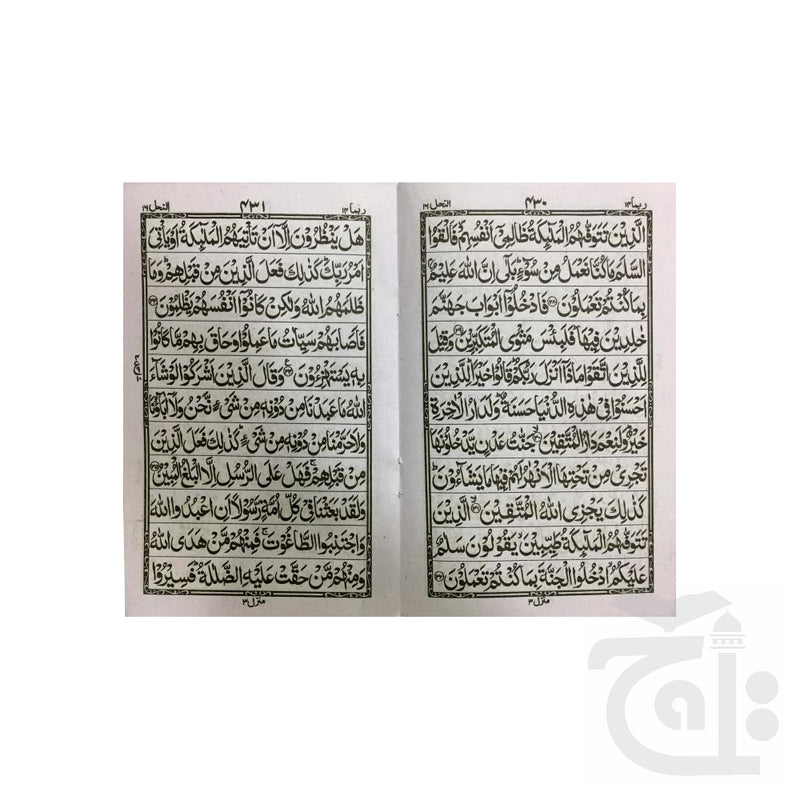 ربما ۱۴
۴۳۰
النحل ۱۶
الَّذِيْنَ تَتَوَفّٰىهُمُ الْمَلٰٓئِكَةُ ظَالِمِيْٓ اَنْفُسِهِمْ فَاَلْقَوُا
السَّلَمَ مَا كُنَّا نَعْمَلُ مِنْ سُوْٓءٍ بَلٰٓى اِنَّ اللّٰهَ عَلِيْمٌۢ
بِمَا كُنْتُمْ تَعْمَلُوْنَ ۲۸ فَادْخُلُوْٓا اَبْوَابَ جَهَنَّمَ
خٰلِدِيْنَ فِيْهَا فَلَبِئْسَ مَثْوَى الْمُتَكَبِّرِيْنَ ۲۹ وَقِيْلَ
لِلَّذِيْنَ اتَّقَوْا مَاذَآ اَنْزَلَ رَبُّكُمْ قَالُوْا خَيْرًا لِلَّذِيْنَ
اَحْسَنُوْا فِيْ هٰذِهِ الدُّنْيَا حَسَنَةٌ وَلَدَارُ الْاٰخِرَةِ
خَيْرٌ وَلَنِعْمَ دَارُ الْمُتَّقِيْنَ ۳۰ جَنّٰتُ عَدْنٍ يَّدْخُلُوْنَهَا
تَجْرِيْ مِنْ تَحْتِهَا الْاَنْهٰرُ لَهُمْ فِيْهَا مَا يَشَآءُوْنَ
كَذٰلِكَ يَجْزِى اللّٰهُ الْمُتَّقِيْنَ ۳۱ الَّذِيْنَ
تَتَوَفّٰىهُمُ الْمَلٰٓئِكَةُ طَيِّبِيْنَ يَقُوْلُوْنَ سَلٰمٌ
عَلَيْكُمُ ادْخُلُوا الْجَنَّةَ بِمَا كُنْتُمْ تَعْمَلُوْنَ ۳۲
منزل ۳
ربما ۱۴
۴۳۱
النحل ۱۶
هَلْ يَنْظُرُوْنَ اِلَّآ اَنْ تَاْتِيَهُمُ الْمَلٰٓئِكَةُ اَوْ يَاْتِيَ
اَمْرُ رَبِّكَ كَذٰلِكَ فَعَلَ الَّذِيْنَ مِنْ قَبْلِهِمْ وَمَا
ظَلَمَهُمُ اللّٰهُ وَلٰكِنْ كَانُوْٓا اَنْفُسَهُمْ يَظْلِمُوْنَ ۳۳
فَاَصَابَهُمْ سَيِّاٰتُ مَا عَمِلُوْا وَحَاقَ بِهِمْ مَّا كَانُوْا
بِهٖ يَسْتَهْزِءُوْنَ ۳۴ وَقَالَ الَّذِيْنَ اَشْرَكُوْا لَوْ شَآءَ
اللّٰهُ مَا عَبَدْنَا مِنْ دُوْنِهٖ مِنْ شَيْءٍ نَّحْنُ وَلَآ اٰبَآؤُنَا
وَلَا حَرَّمْنَا مِنْ دُوْنِهٖ مِنْ شَيْءٍ كَذٰلِكَ فَعَلَ الَّذِيْنَ
مِنْ قَبْلِهِمْ فَهَلْ عَلَى الرُّسُلِ اِلَّا الْبَلٰغُ الْمُبِيْنُ ۳۵
وَلَقَدْ بَعَثْنَا فِيْ كُلِّ اُمَّةٍ رَّسُوْلًا اَنِ اعْبُدُوا اللّٰهَ
وَاجْتَنِبُوا الطَّاغُوْتَ فَمِنْهُمْ مَّنْ هَدَى اللّٰهُ
وَمِنْهُمْ مَّنْ حَقَّتْ عَلَيْهِ الضَّلٰلَةُ فَسِيْرُوْا
منزل ۳